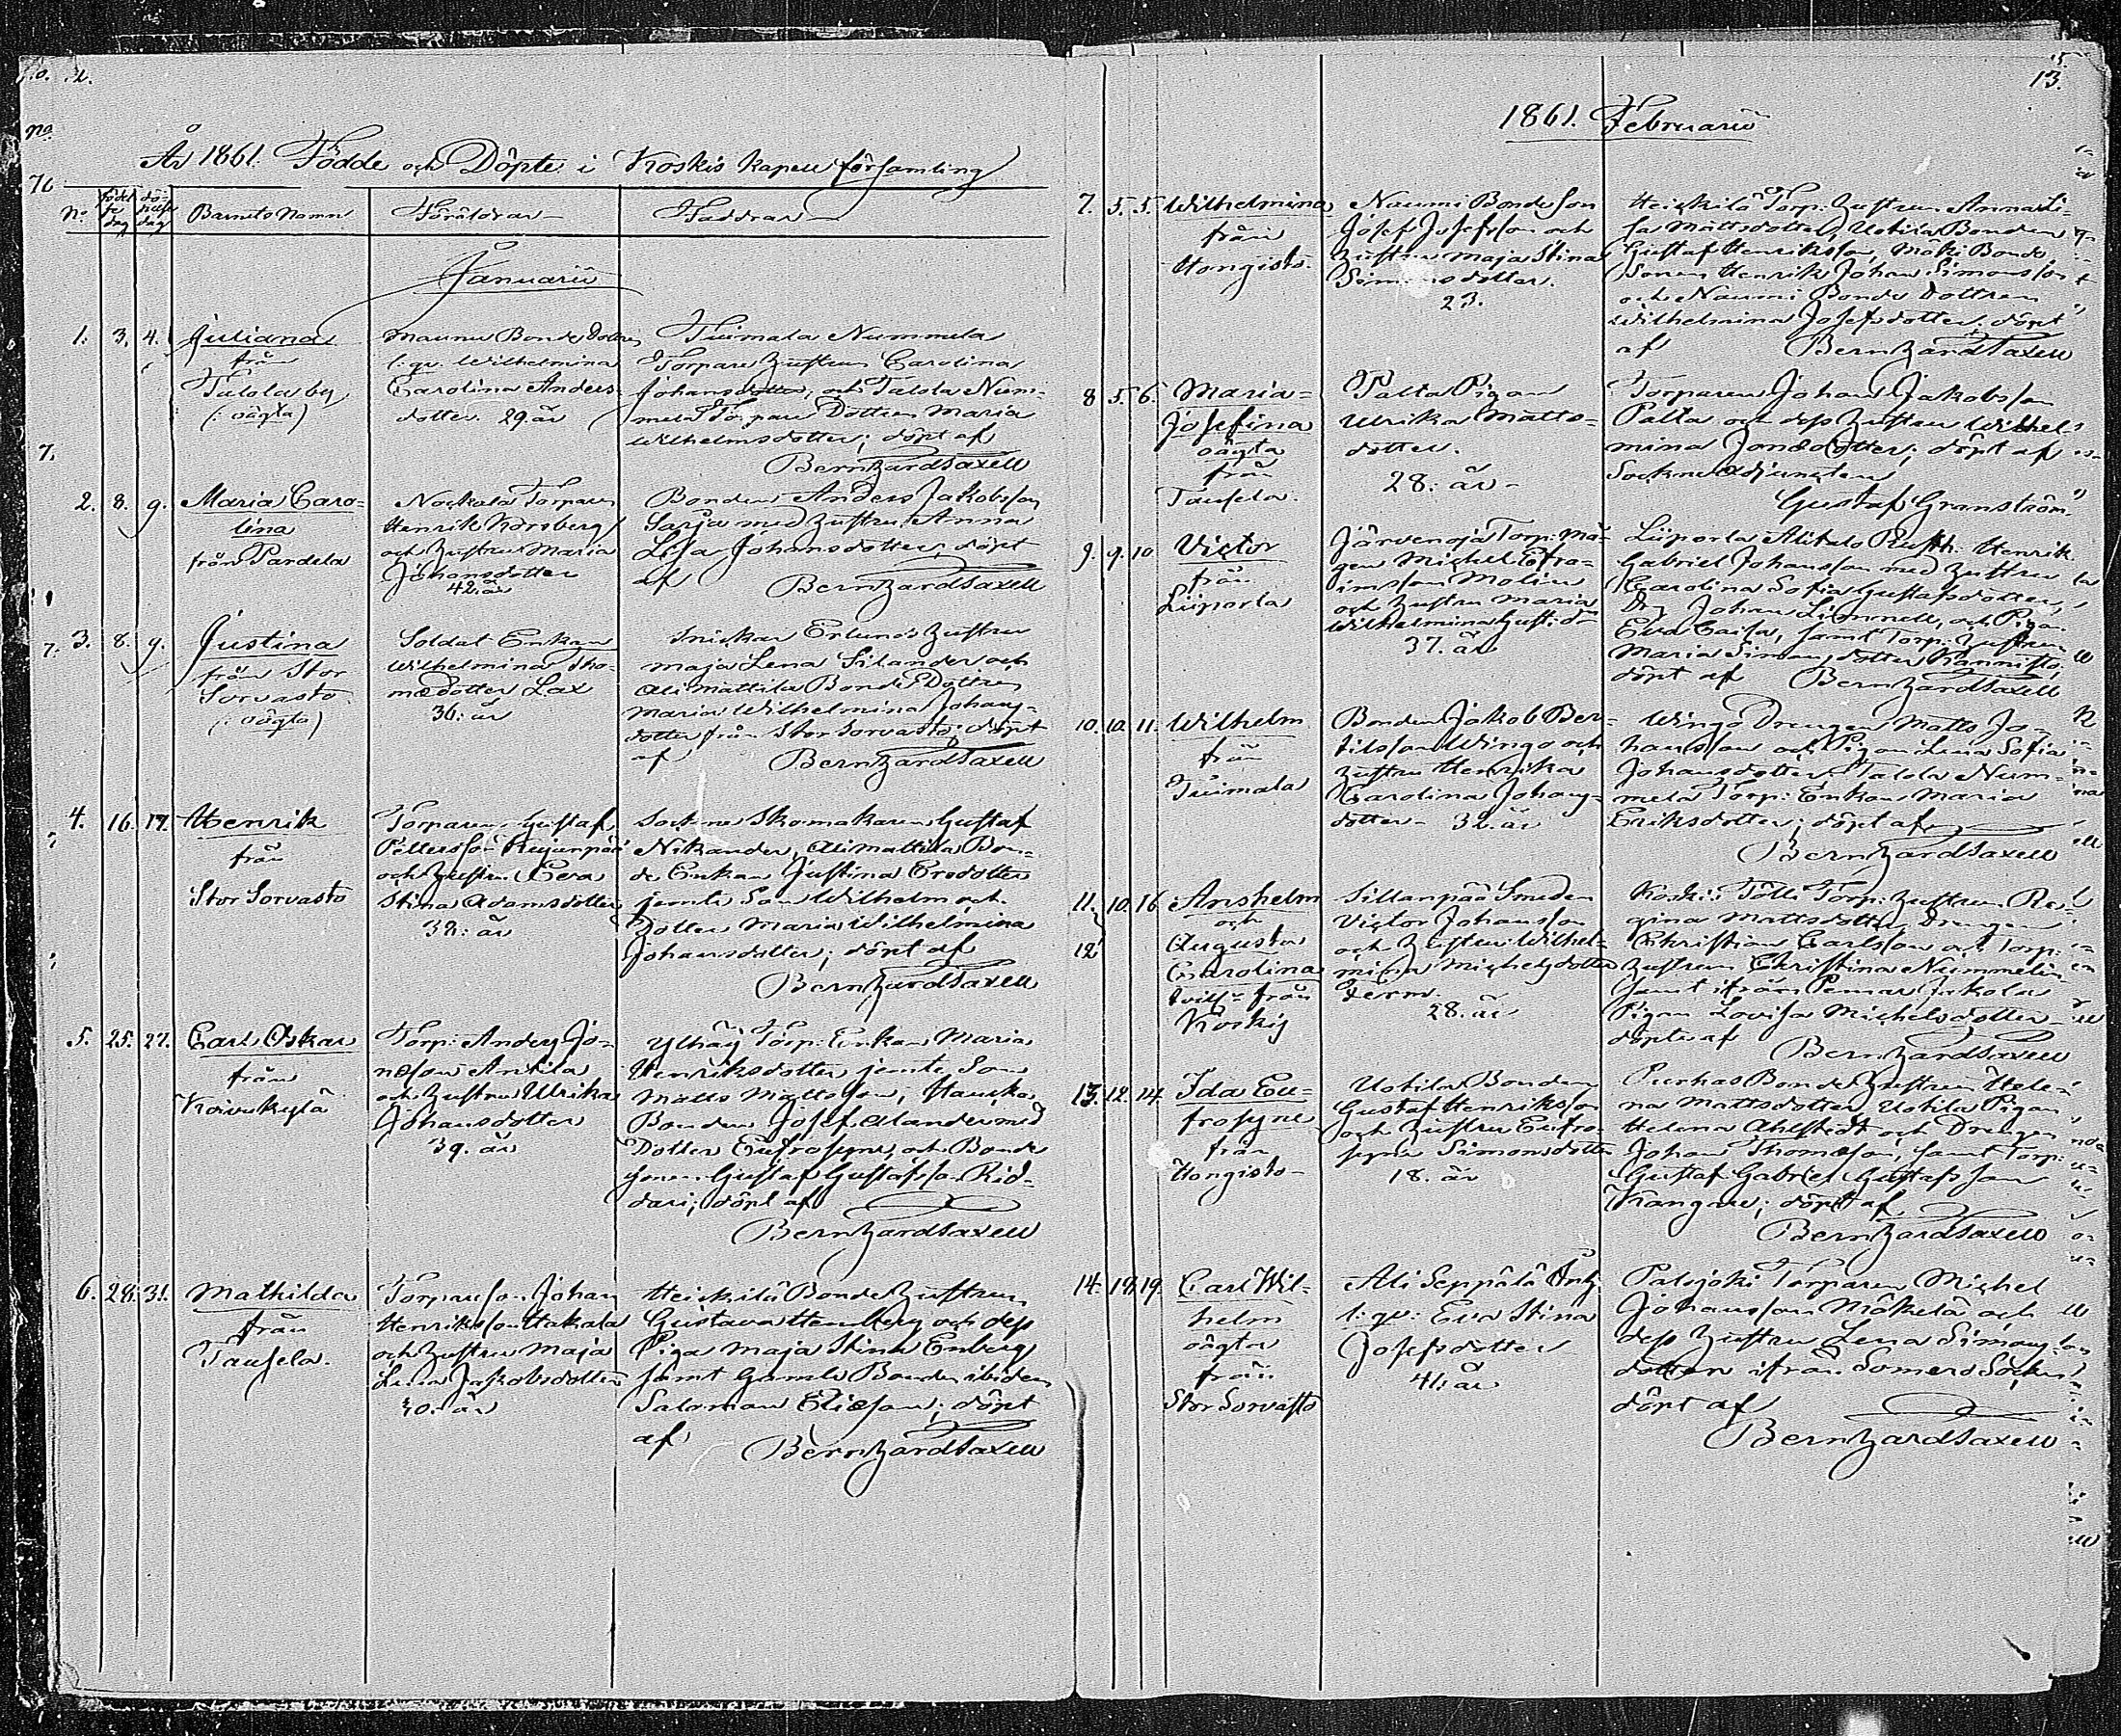 År 1861. Födde och Döpte i Koskis kapell församling
No
Barnets Namn
Föräldrar
Faddrar
Januarii
1. 3. 4.
Juliana
från
Talola by
(: oägta)
Maunu Bonde Dottren
l: qv. Wilhelmina
Carolina Anders-
dotter. 29. år
Tuimala Nummela
Torpare hustrun Carolina
Johansdotter, och Talola Num-
mela Torpare Dottren Maria
Wilhelmsdotter; döpt af
Bernhard Saxell
2. 8. 9.
Maria Caro-
lina
från Pardela
Torparen
Henrik Norsberg
och hustrun Maria
Johansdotter
42. år
Bonden Anders Jakobsson
Sarja med hustru Anna
Lisa Johansdotter, döpt
af Bernhard Saxell
3. 8. 9.
Justina
från Stor
Sorvasto
(: oägta)
Soldat Enkan
Wilhelmina Tho-
mædotter Lax
36: år
Snickar Erlunds hustru
Maja Lena Silander och
Alimattila Bonde Dottren
Maria Wilhelmina Johans-
dotter från Stor Sorvasto; döpt
af Bernhard Saxell
4. 16. 17.
Henrik
från
Stor Sorvasto
Torparen Gustaf
Pettersson Kujanpää
och hustru Eva
Stina Adamsdotter
38: år
Sockne Skomakaren Gustaf
Nikander, Alimattila Bon-
de Enkan Justina Ersdotter
jemte Son Wilhelm och
Dotter Maria Wilhelmina
Johansdotter; döpt af
Bernhard Saxell
5. 25. 27.
Carl Oskar
från
Koivukylä
Torp: Anders Jo-
næson Anttila
och hustru Ulrika
Johansdotter
39. år
Ylhäy Torp: Enkan Maria
Henriksdotter jemte Son
Matts Mattsson,
Bonden Josef Alander med
Dotter Eufrosyne, och Bonde
sonen Gustaf Gustafsson Rid-
dari; döpt af
Bernhard Saxell
6. 28. 31.
Mathilda
från
Taufela.
Torpareson Johan
Henriksson Hakala
och hustru Maja
Lena Jakobsdotter
30. år
Heickilä Bonde hustrun
Gustava Hemberg och dess
Piga Maja Stina Enberg
samt Gamle Bonden ibidem
Salomon Eliæson; döpt
af Bernhard Saxell
13.
1861. Februarii
7. 5. 5.
Wilhelmina
från
Hongisto
Naumi Bonde Son
Josef Josefsson och
hustru Maja Stina
Simonsdotter.
23.
Heickilä Torp: hustrun Anna Li-
sa Mattsdotter, Uotila Bonden
Gustaf Henriksson, Mäki Bonde
Sonen Henrik Johan Simonsson
och Naumi Bonde Dottren
Wilhelmina Josefsdotter; döpt
af Bernhard Saxell
8 5. 6.
Maria
Josefina
oägta
från
Taufela.
Palta Pigan
Ulrika Matts-
dotter.
28: år
Torparen Johan Jakobsson
Palta och dess hustru Wilhel-
mina Jonædotter; döpt af
Sockneadjuncten
Gustaf Granström
9. 9. 10.
Victor
från
Liiporla
Järvenoja Torp: må-
gen Michel Efra-
imsson Molin
och hustru Maria
Wilhelmina Gust:dr
37. år
Liiporla Alitalo Rusth: Henrik
Gabriel Johansson med hustru
Carolina Sofia Gustafsdotter,
Dr Johan Limnell, och Pigan
Eva Caisa, samt Torp: hustrun
Maria Simonsdotter Kannisto;
döpt af Bernhard Saxell
10. 10. 11.
Wilhelm
från
Tuimala
Bonden Jakob Ber-
tilsson Wingo och
hustru Henrika
Carolina Johans-
dotter - 32. år
Wingo Drengen Matts Jo-
hansson och Pigan Lena Sofia
Johansdotter, Talola Num-
mela Torp: Enkan Maria
Eriksdotter; döpt af
Bernhard Saxell
11. 10. 16
12
Anshelm
och
Augusta
Carolina
från
Koskis
Sillanpää Smeden
Victor Johansson
och hustru Wilhel-
mina Michelsdotter
Term
28. år
Koskis Tölli Torp: hustrun Re-
gina Mattsdotter, Drengen
Christian Carlsson och Torp:
hustrun Christina Nummelin
samt ifrån Pemar
Pigan Lovisa Michelsdotter
döpte af
Bernhard Saxell
13. 12. 14
Ida Eu-
frosyne
från
Hongisto
Uotila Bonden
Gustaf Henriksson
och hustru Eufro-
syne Simonsdotter
18. år
Purhas Bonde hustrun Hele-
na Mattsdotter, Uotila Pigan
Helena Ahlstedt och Drengen
Johan Thomæson, samt Torp:
Gustaf Gabriel Gustafsson
Kangare; döpt af
Bernhard Saxell
14. 18. 19.
Carl Wil-
helm
oägta
från
Stor Sorvasto
Ali Seppälä Enk:
l: qv: Eva Stina
Josefsdotter
41: år
Palojoki Torparen Michel
Johansson Mäkelä och
dess hustru Lena Simons-
dotter ifrån Somero Sockn
döpt af
Bernhard Saxell